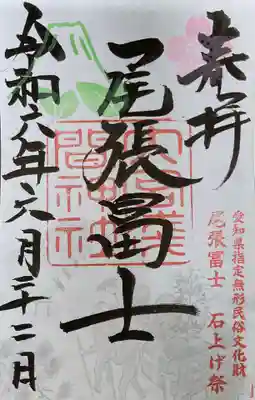 奉拝
愛知県指定無形民俗文化財
尾張冨士 石上げ祭
尾張冨士
大宮
間神社
令和六年六月二十二日